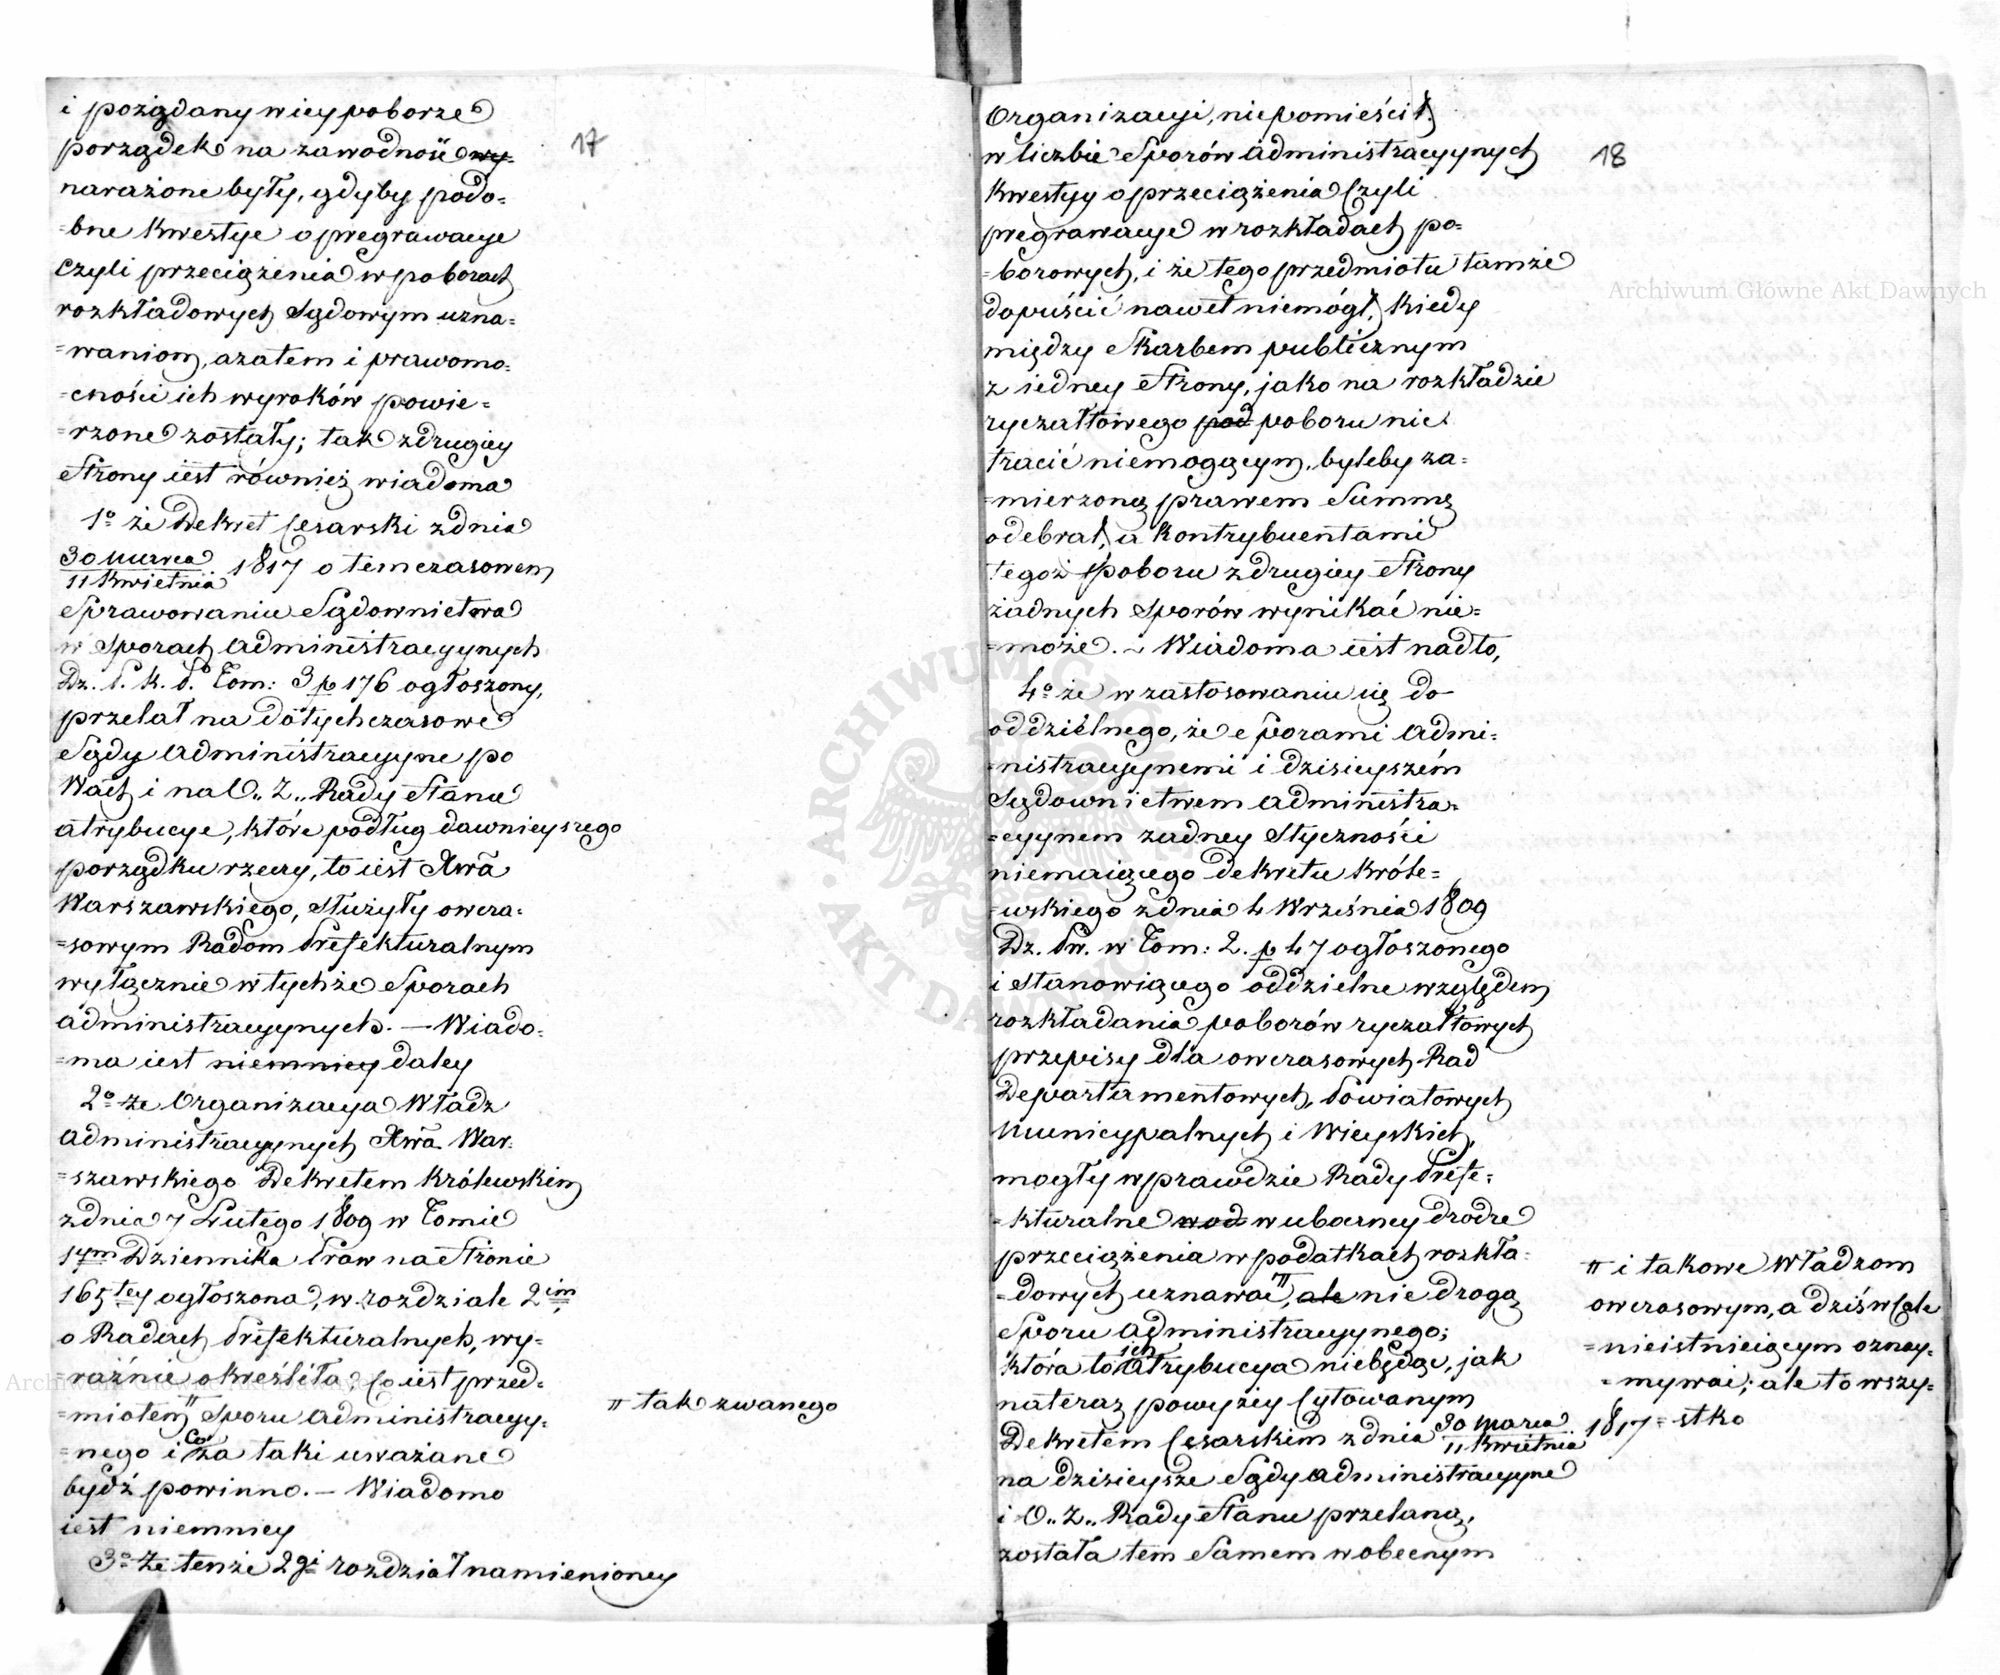 17
i pożądany w iey poborze
porządek na zawodność wy-
narażone były, gdyby podo-
-bne kwestye o pregrawacye
czyli przeciążenia w poborach
rozkładowych Sądowym uzna-
-waniom, a zatem i prawomo-
-cności ich wyroków powie-
-rzone zostały; tak z drugiey
Strony iest również wiadoma
1o że Dekret Cesarski z dnia
30 Marca / 11 Kwietnia 1817 o temczasowem
Sprawowaniu Sądownictwa
w Sporach administracyynych
Dz. P. K. P. Tom: 3 p 176 ogłoszony,
przelał na dotychczasowe
Sądy administracyyne po
Wach i na O. Z. Rady Stanu
atrybucye, które podług dawnieyszego
porządku rzeczy, to iest Xwa
Warszawskiego, służyły owcza-
-sowym Radom Prefekturalnym
wyłącznie w tychże Sporach
administracyynych. — Wiado-
-ma iest niemniey daley
2o że Organizacya Władz
administracyynych Xwa War-
-szawskiego Dekretem Królewskim
z dnia 7 Lutego 1809 w Tomie
1ym Dziennika Praw na Stronie
165tey ogłoszona, w rozdziale 2im
o Radach Prefekturalnych, wy-
-raźnie określiła, co iest przed-
-miotem π Sporu administracyy-
π tak zwanego
-nego i co za taki uważane
bydź powinno. — Wiadomo
iest niemniey
3o że tenże 2gi rozdział namienioney
18
Organizacyi, niepomieścił
w liczbie Sporów administracyynych
kwestyy o przeciążenia czyli
pregrawacye w rozkładach po-
-borowych, i że tego przedmiotu tamże
dopuścić nawet niemógł, kiedy
między Skarbem publicznym
z iedney Strony, jako na rozkładzie
ryczałtowego pod poboru nic
tracić niemogącym, byleby za-
-mierzoną prawem Summę
odebrał, a kontrybuentami
tegoż poboru z drugiey Strony
żadnych Sporów wynikać nie-
-może. ~ Wiadoma iest nadto,
4o że w zastosowaniu się do
oddzielnego, że Sporami admi-
-nistracyynemi i dzisieyszém
Sądownictwem administra-
-cyynem żadney Styczności
niemaiącego dekretu Króle-
-wskiego z dnia 4 Września 1809
Dz. Pr. w Tom: 2. p 47 ogłoszonego
i stanowiącego oddzielne względem
rozkładania poborów ryczałtowych
przepisy dla owczasowych Rad
Departamentowych, Powiatowych
Municypalnych i Wieyskich,
mogły wprawdzie Rady Prefe-
-kturalne w ubocney drodze
przeciążenia w podatkach rozkła-
-dowych uznawać π, ale nie drogą
π i takowe Władzom
owczasowym, a dziś wcale
-nieistnieiącym oznay-
-mywać; ale to wszy-
-stko
Sporu administracyynego;
która to ich atrybucya niebędąc, jak
nateraz powyżey cytowanym
Dekretem Cesarskim z dnia 30 Marca / 11 Kwietnia 1817
na dzisieysze Sądy administracyyne
i O. Z. Rady Stanu przelaną,
została tem Samem w obecnym
Archiwum Główne Akt Dawnych
Archiwum Główne Akt Dawnych
ARCHIWUM GŁÓWNE AKT DAWNYCH